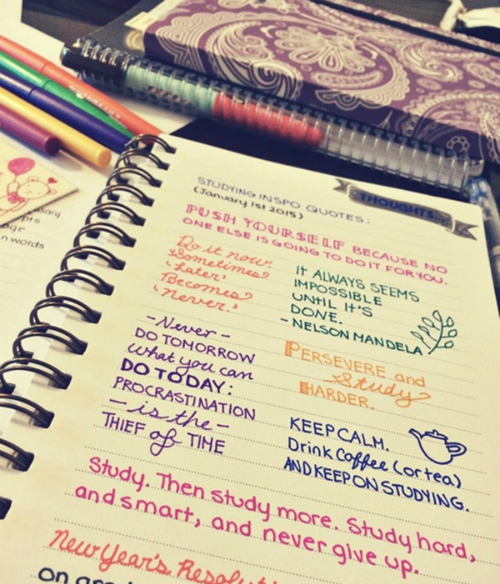 STUDYING INSPO QUOTES:
(January 1st 2015)
THOUGHTS
PUSH YOURSELF BECAUSE NO
ONE ELSE IS GOING TO DO IT FOR YOU.
Do it now.
Sometimes
'Later'
Becomes
'Never'.
IT ALWAYS SEEMS
IMPOSSIBLE
UNTIL IT'S
DONE.
- NELSON MANDELA
- Never -
DO TOMORROW
what you can
DO TODAY:
PROCRASTINATION
- is the -
THIEF of TIME
PERSEVERE and
Study
HARDER.
KEEP CALM.
Drink Coffee (or tea)
AND KEEP ON STUDYING.
Study. Then study more. Study hard,
and smart, and never give up.
New Year's
on
words